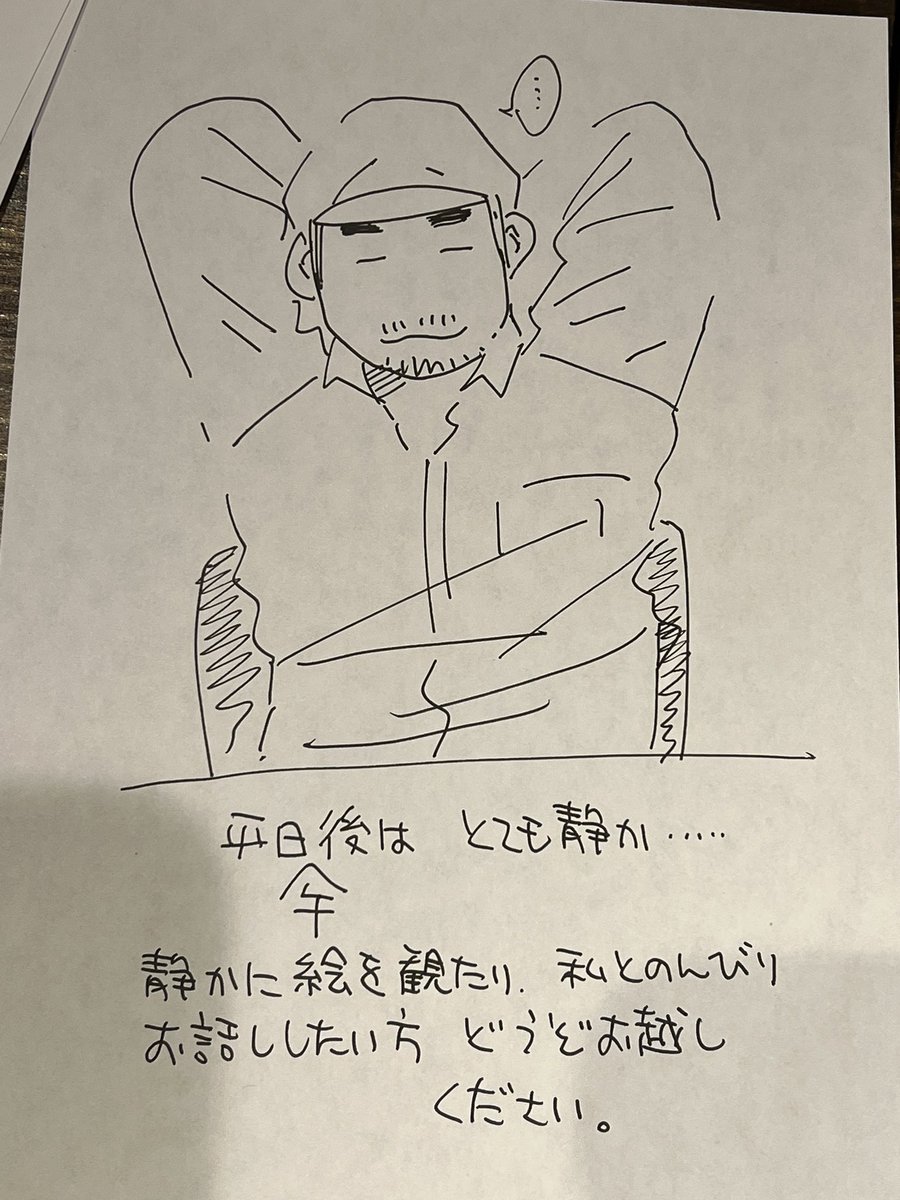 ……
平日後は とても静か‥‥‥
午
静かに絵を観たり、私とのんびり
お話ししたい方 どうぞお越し
ください。